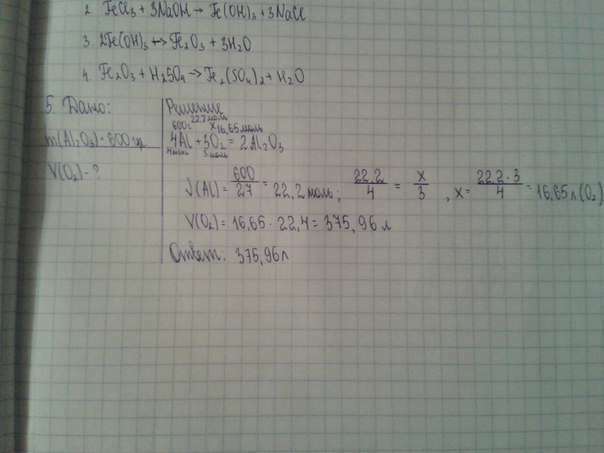 2. FeCl₃ + 3NaOH → Fe(OH)₃ + 3NaCl
3. 2Fe(OH)₃ ↔ Fe₂O₃ + 3H₂O
4. Fe₂O₃ + H₂SO₄ → Fe₂(SO₄)₂ + H₂O
5. Дано:
m(Al₂O₃) = 600 гр
V(O₂) - ?
Решение
22,2 моль
600г x 16,65 моль
4Al + 3O₂ = 2Al₂O₃
4 моль 3 моль
J(Al) = 600/27 = 22,2 моль; 22,2/4 = x/3, x = 22,2·3/4 = 16,65 л (O₂)
V(O₂) = 16,65 · 22,4 = 375,96 л
Ответ: 375,96 л